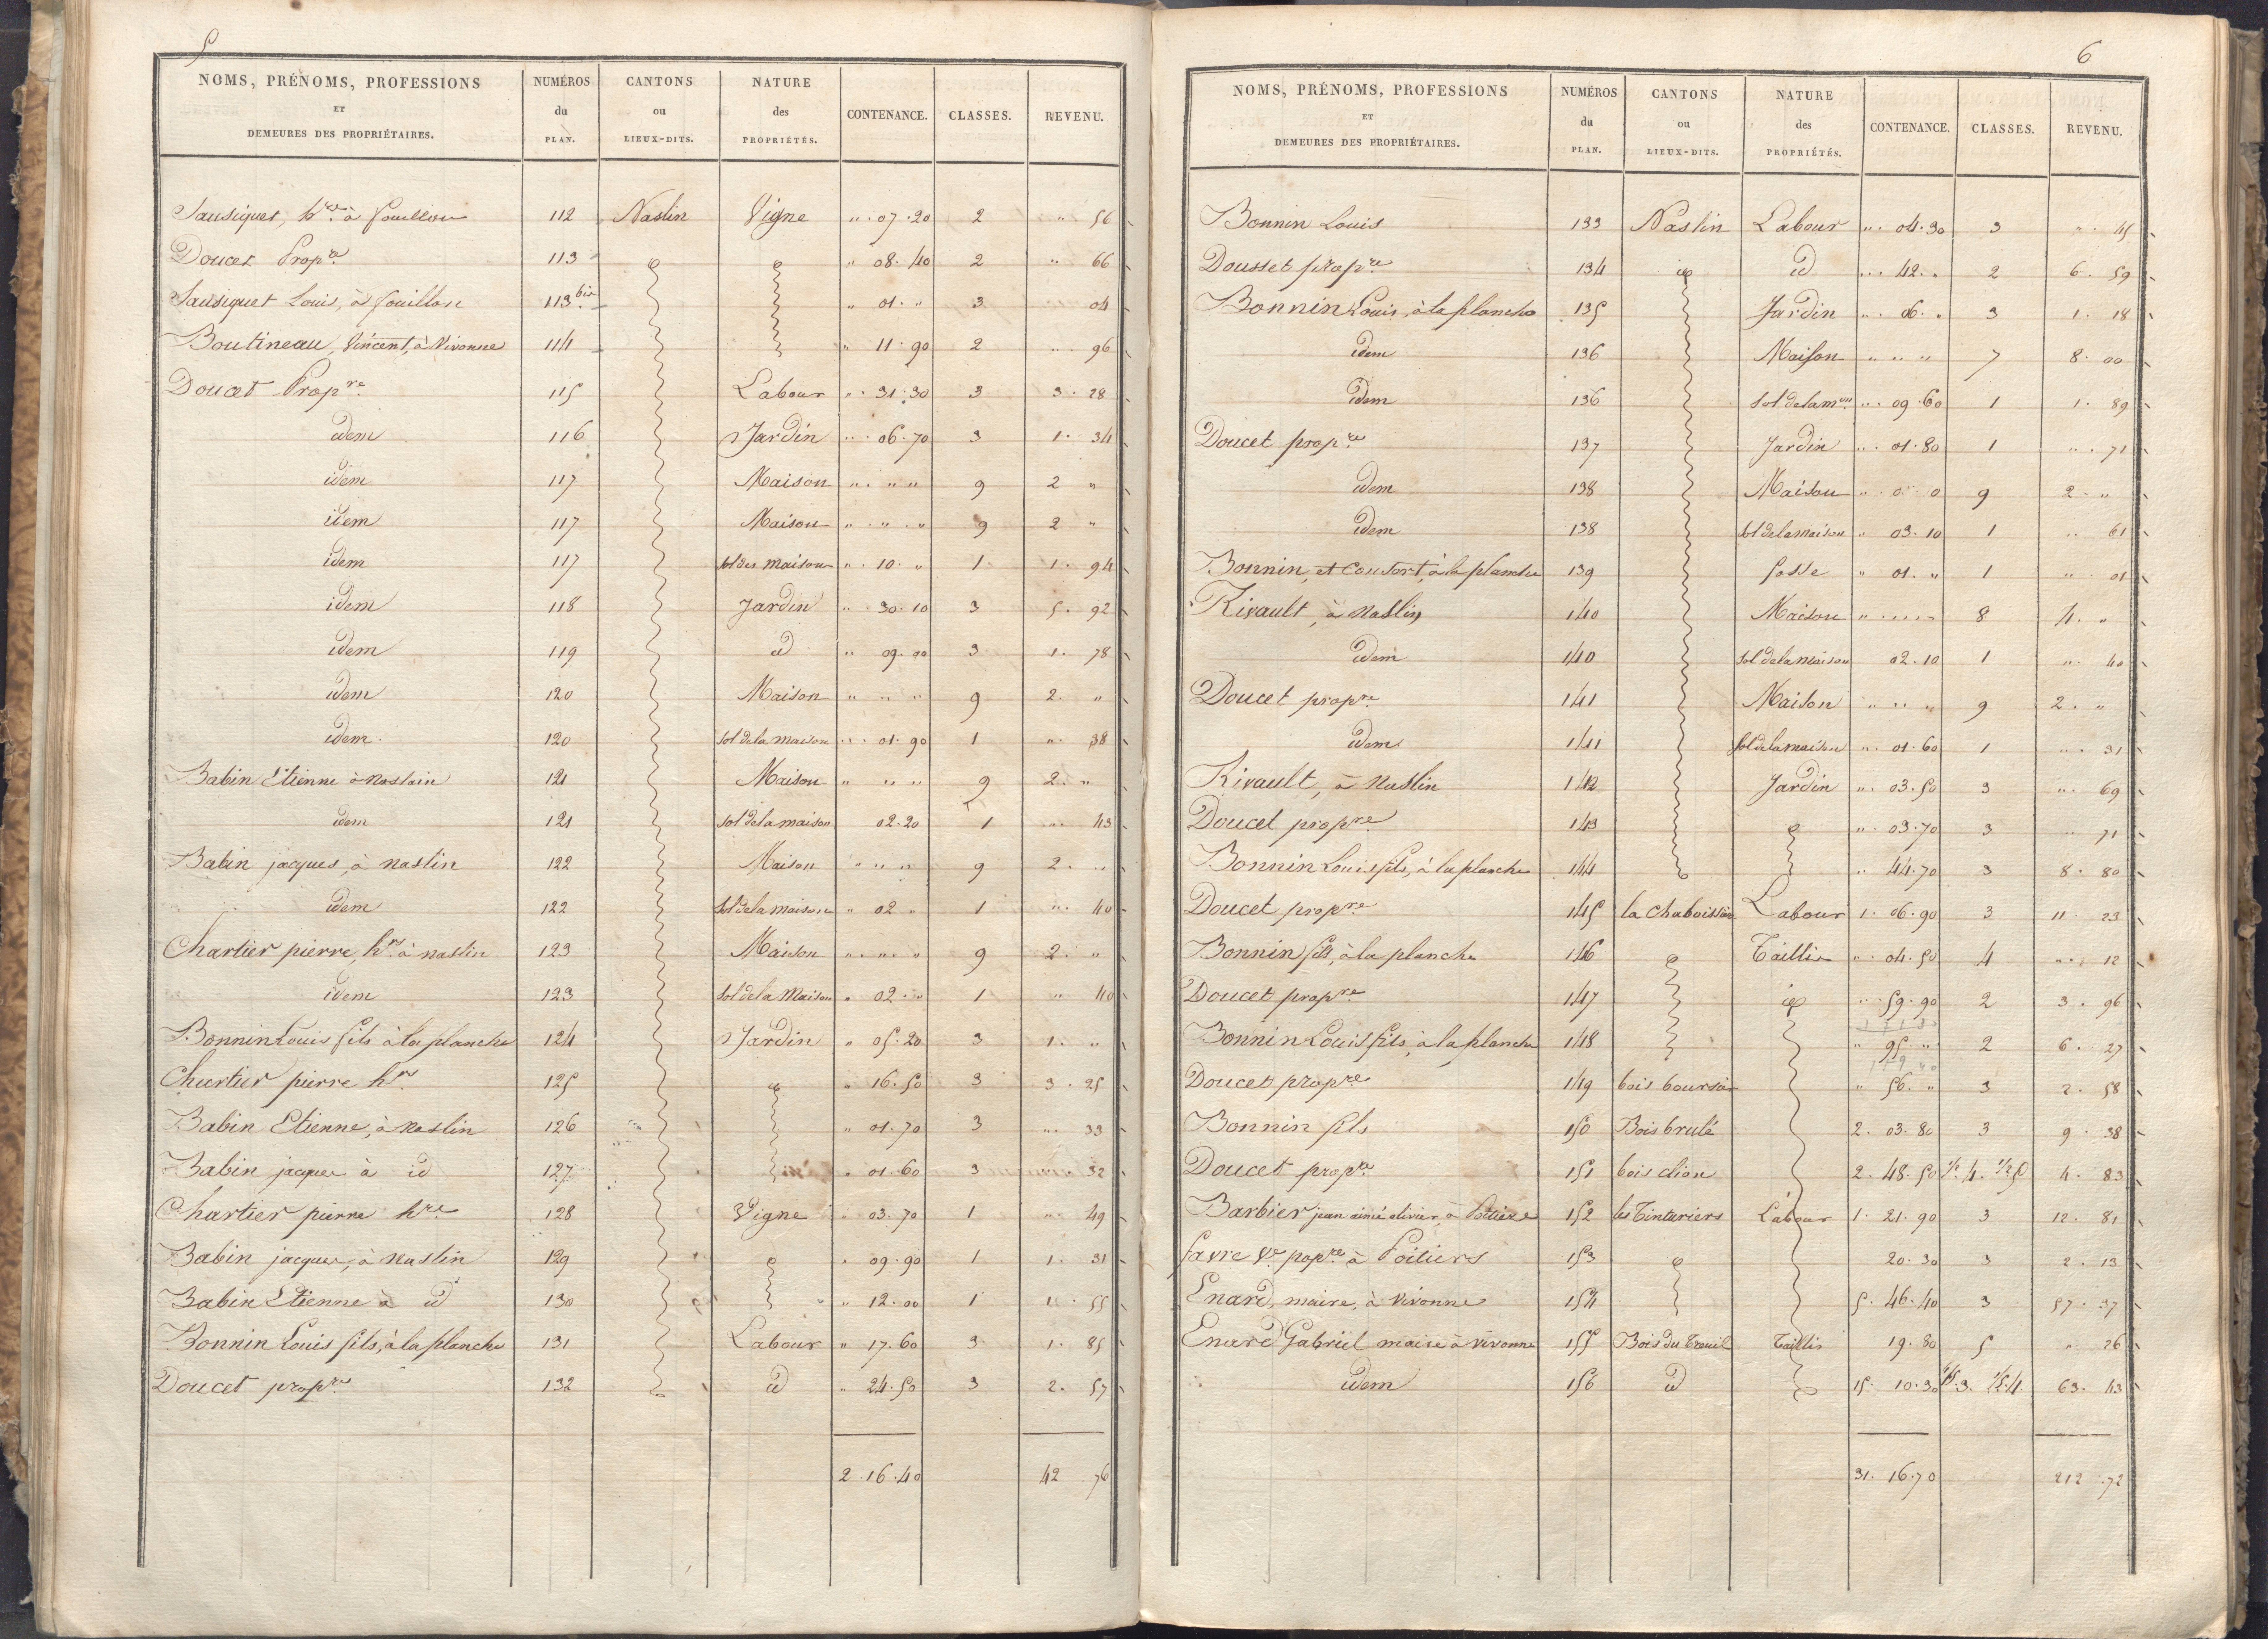 5
NOMS, PRÉNOMS, PROFESSIONS ET DEMEURES DES PROPRIÉTAIRES. NUMÉROS du PLAN. CANTONS ou LIEUX-DITS. NATURE des PROPRIÉTÉS. CONTENANCE. CLASSES. REVENU.
Sausiquet, hre à fouillou 112 Naslin Vigne " 07 20 2 " 56
Doucet Propre 113 " 08 40 2 " 66
Sausiquet Louis, à fouillou 113 bis " 01 " 3 04
Boutineau, Vincent, à Vivonne 114 " 11 90 2 " 96
Doucet Propre 115 Labour " 31 30 3 3 28
idem 116 Jardin " 06 70 3 1 34
idem 117 Maison " " " 9 2 "
idem 117 Maison " " " 9 2 "
idem 117 sol des maisons " 10 " 1 1 94
idem 118 Jardin " 30 10 3 5 92
idem 119 id " 09 3 1 78
idem 120 Maison " " " 9 2 "
idem 120 sol de la maison " 01 90 1 " 38
Babin Etienne à naslain 121 Maison " " " 9 2 "
idem 121 sol de la maison 02 20 1 " 43
Babin jacques, à naslin 122 Maison " " " 9 2 "
idem 122 sol de la maison " 02 " 1 " 40
Chartier pierre, hrs à naslin 123 Maison " " " 9 2 "
idem 123 sol de la Maison " 02 " 1 " 40
Bonnin Louis fils à la planche 124 Jardin " 05 20 3 1 "
Chartier pierre hrs 125 " 16 50 3 3 25
Babin Etienne, à naslin 126 " 01 70 3 " 33
Babin jacques à id 127 " 01 60 3 " 32
Chartier pierre hre 128 Vigne " 03 70 1 " 49
Babin jacques, à naslin 129 " 09 90 1 1 31
Babin Etienne à id 130 " 12 00 1 1 55
Bonnin Louis fils, à la planche 131 Labour " 17 60 3 1 85
Doucet propre 132 id " 24 50 3 2 57
2 16 40 42 76
6
NOMS, PRÉNOMS, PROFESSIONS ET DEMEURES DES PROPRIÉTAIRES. NUMÉROS du PLAN. CANTONS ou LIEUX-DITS. NATURE des PROPRIÉTÉS. CONTENANCE. CLASSES. REVENU.
Bonnin Louis 133 Naslin Labour " 04 30 3 " 45
Dousset propre 134 id " 42 " 2 6 59
Bonnin Louis, à la planche 135 Jardin " 06 " 3 1 18
idem 136 Maison " " " 7 8 00
idem 136 sol de la mon " 09 60 1 1 89
Doucet propre 137 Jardin " 01 80 1 " 71
idem 138 Maison " 0 0 9 2 "
idem 138 sol de la maison " 03 10 1 " 61
Bonnin, et Consort, à la planche 139 fosse " 01 " 1 " 01
Rivault, à naslin 140 Maison " 8 4 "
idem 140 sol de la maison 02 10 1 " 40
Doucet propre 141 Maison " " " 9 2 "
idem 141 sol de la maison " 01 60 1 " 31
Rivault, à naslin 142 Jardin " 03 50 3 " 69
Doucet propre 143 " 03 70 3 71
Bonnin Louis fils, à la planche 144 " 44 70 3 8 80
Doucet propre 145 Labour 1 06 90 3 11 23
Bonnin fils, à la planche 146 Taillis " 04 50 4 " 12
Doucet propre 147 " 59 90 2 3 96
Bonnin Louis fils, à la planche 148 " 95 " 2 6 27
Doucet propre 149 " 56 " 3 2 58
Bonnin fils 150 Bois brulé 2 03 80 3 9 38
Doucet propre 151 bois clion 2 48 50 1/2 4 1/2 5 4 83
Barbier jean aimé olivier, à Poitiers 152 les Tinturiers Labour 1 21 90 3 12 81
favre Ve propre à Poitiers 153 20 30 3 2 13
Enard, maire, à Vivonne 154 5 46 40 3 57 37
Enard Gabriel maire à vivonne 155 Bois du Treuil Taillis 19 80 5 " 26
idem 156 id 15 10 30 63 43
31 16 70 212 72